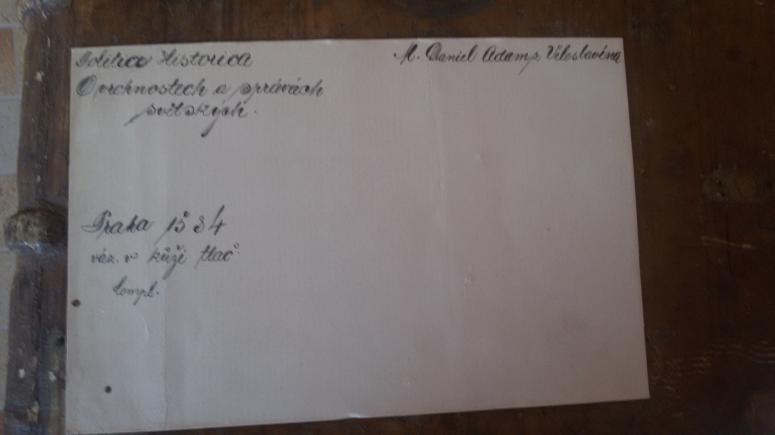 Politica Historica
M. Daniel Adam z Veleslavína
O vrchnostech a správách
světských.
Praha 1584
váz. v kůži tlač.
kompl.